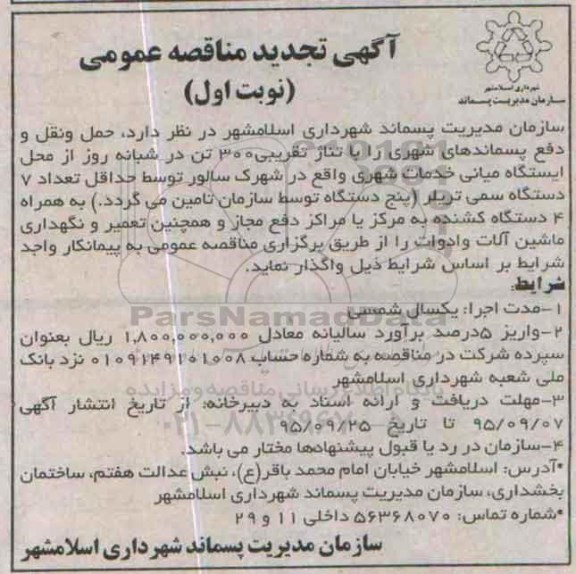 آگهی تجدید مناقصه عمومی
(نوبت اول)
شهرداری اسلامشهر
سازمان مدیریت پسماند
سازمان مدیریت پسماند شهرداری اسلامشهر در نظر دارد، حمل ونقل و
دفع پسماندهای شهری را با تناژ تقریبی۳۰۰ تن در شبانه روز از محل
ایستگاه میانی خدمات شهری واقع در شهرک سالور توسط حداقل تعداد ۷
دستگاه سمی تریلر (پنج دستگاه توسط سازمان تامین می گردد.) به همراه
۴ دستگاه کشنده به مرکز یا مراکز دفع مجاز و همچنین تعمیر و نگهداری
ماشین آلات وادوات را از طریق برگزاری مناقصه عمومی به پیمانکار واجد
شرایط بر اساس شرایط ذیل واگذار نماید.
شرایط:
۱-مدت اجرا: یکسال شمسی
ParsNamadData
۲-واریز ۵درصد برآورد سالیانه معادل ۱,۸۰۰,۰۰۰,۰۰۰ ریال بعنوان
سپرده شرکت در مناقصه به شماره حساب ۰۱۰۹۱۴۹۲۰۱۰۰۸ نزد بانک
ملی شعبه شهرداری اسلامشهر
پایگاه اطلاع رسانی مناقصه و مزایده
۳-مهلت دریافت و ارائه اسناد به دبیرخانه: از تاریخ انتشار آگهی
۹۵/۰۹/۰۷ تا تاریخ ۹۵/۰۹/۲۵
۴-سازمان در رد یا قبول پیشنهادها مختار می باشد.
*آدرس: اسلامشهر خیابان امام محمد باقر(ع)، نبش عدالت هفتم، ساختمان
بخشداری، سازمان مدیریت پسماند شهرداری اسلامشهر
*شماره تماس: ۵۶۳۶۸۰۷۰ داخلی ۱۱ و ۲۹
سازمان مدیریت پسماند شهرداری اسلامشهر